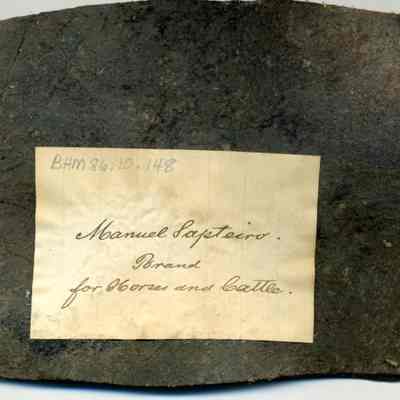 BHM 86.10.148
Manuel Sapteiro.
Brand
for Horses and Cattle.